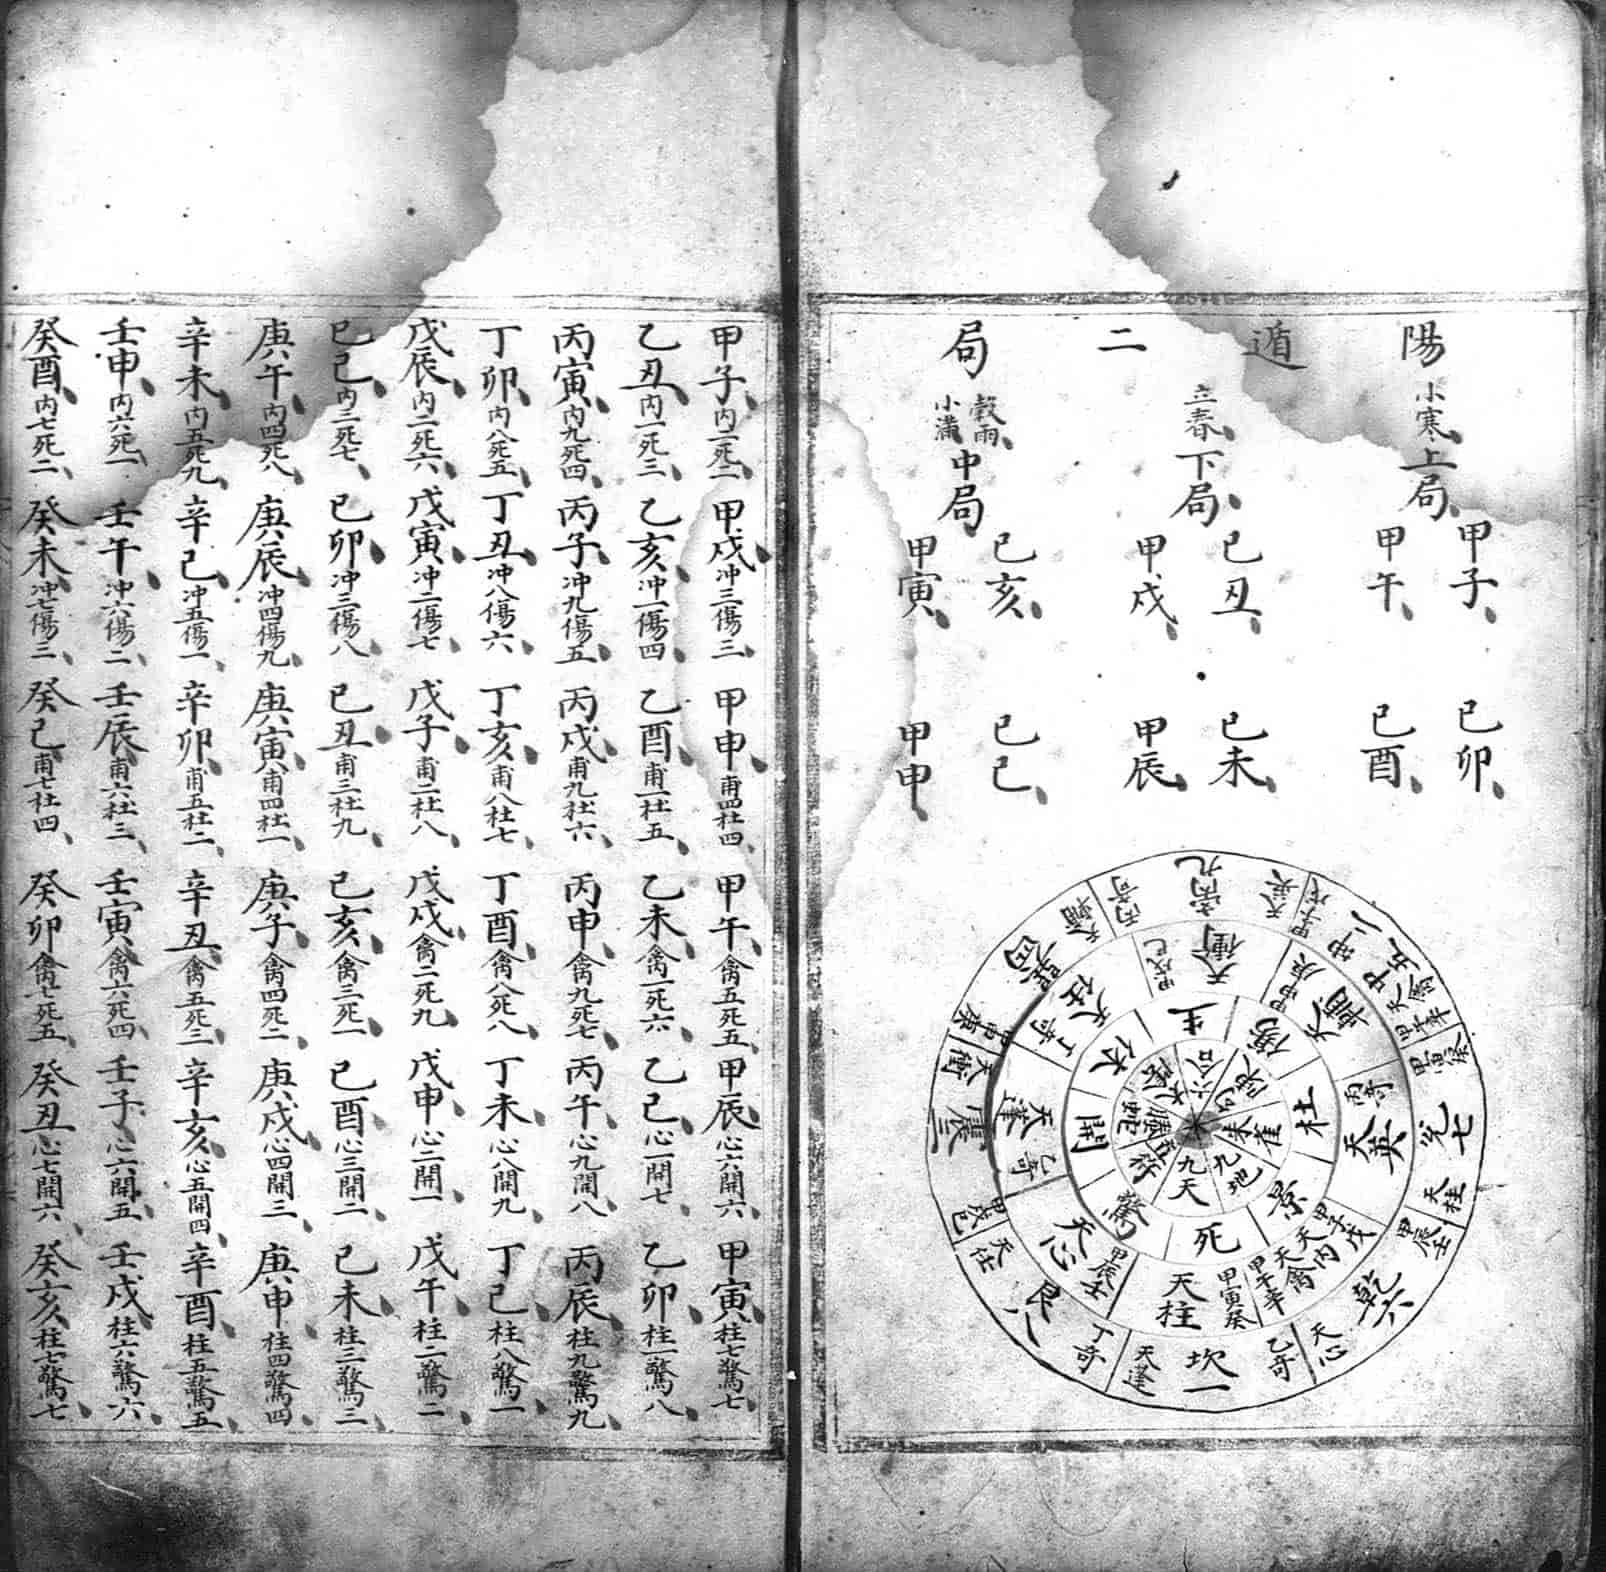 陽遁二局
小寒上局 甲子 己卯
甲午 己酉
立春下局 己丑 己未
甲戌 甲辰
穀雨小滿中局 己亥 己巳
甲寅 甲申
天英 离九 丙奇
天輔 巽四 甲申庚
天衝 震三 甲戌己
天任 艮八 丁奇
天蓬 坎一 乙奇
天心 乾六 甲辰壬
天柱 兌七 甲寅癸
甲午辛 天禽 中五 坤二 甲子戊
天衝 甲戌己
天任 丁奇
天蓬 乙奇
天心 甲辰壬
天柱 甲寅癸
甲午辛 天禽 天内 甲子戊
天英 丙奇
天輔 甲申庚
生 傷 杜 景 死 驚 開 休
六合 勾陳 朱雀 九地 九天 直符 螣蛇 太陰
甲子内二死二 甲戌冲三傷三 甲申甫四杜四 甲午禽五死五 甲辰心六開六 甲寅柱七驚七
乙丑内一死三 乙亥冲一傷四 乙酉甫一杜五 乙未禽一死六 乙巳心一開七 乙卯柱一驚八
丙寅内九死四 丙子冲九傷五 丙戌甫九杜六 丙申禽九死七 丙午心九開八 丙辰柱九驚九
丁卯内八死五 丁丑冲八傷六 丁亥甫八杜七 丁酉禽八死八 丁未心八開九 丁巳柱八驚一
戊辰内二死六 戊寅冲二傷七 戊子甫二杜八 戊戌禽二死九 戊申心二開一 戊午柱二驚二
己巳内三死七 己卯冲三傷八 己丑甫三杜九 己亥禽三死一 己酉心三開二 己未柱三驚三
庚午内四死八 庚辰冲四傷九 庚寅甫四杜一 庚子禽四死二 庚戌心四開三 庚申柱四驚四
辛未内五死九 辛巳冲五傷一 辛卯甫五杜二 辛丑禽五死三 辛亥心五開四 辛酉柱五驚五
壬申内六死一 壬午冲六傷二 壬辰甫六杜三 壬寅禽六死四 壬子心六開五 壬戌柱六驚六
癸酉内七死二 癸未冲七傷三 癸巳甫七杜四 癸卯禽七死五 癸丑心七開六 癸亥柱七驚七